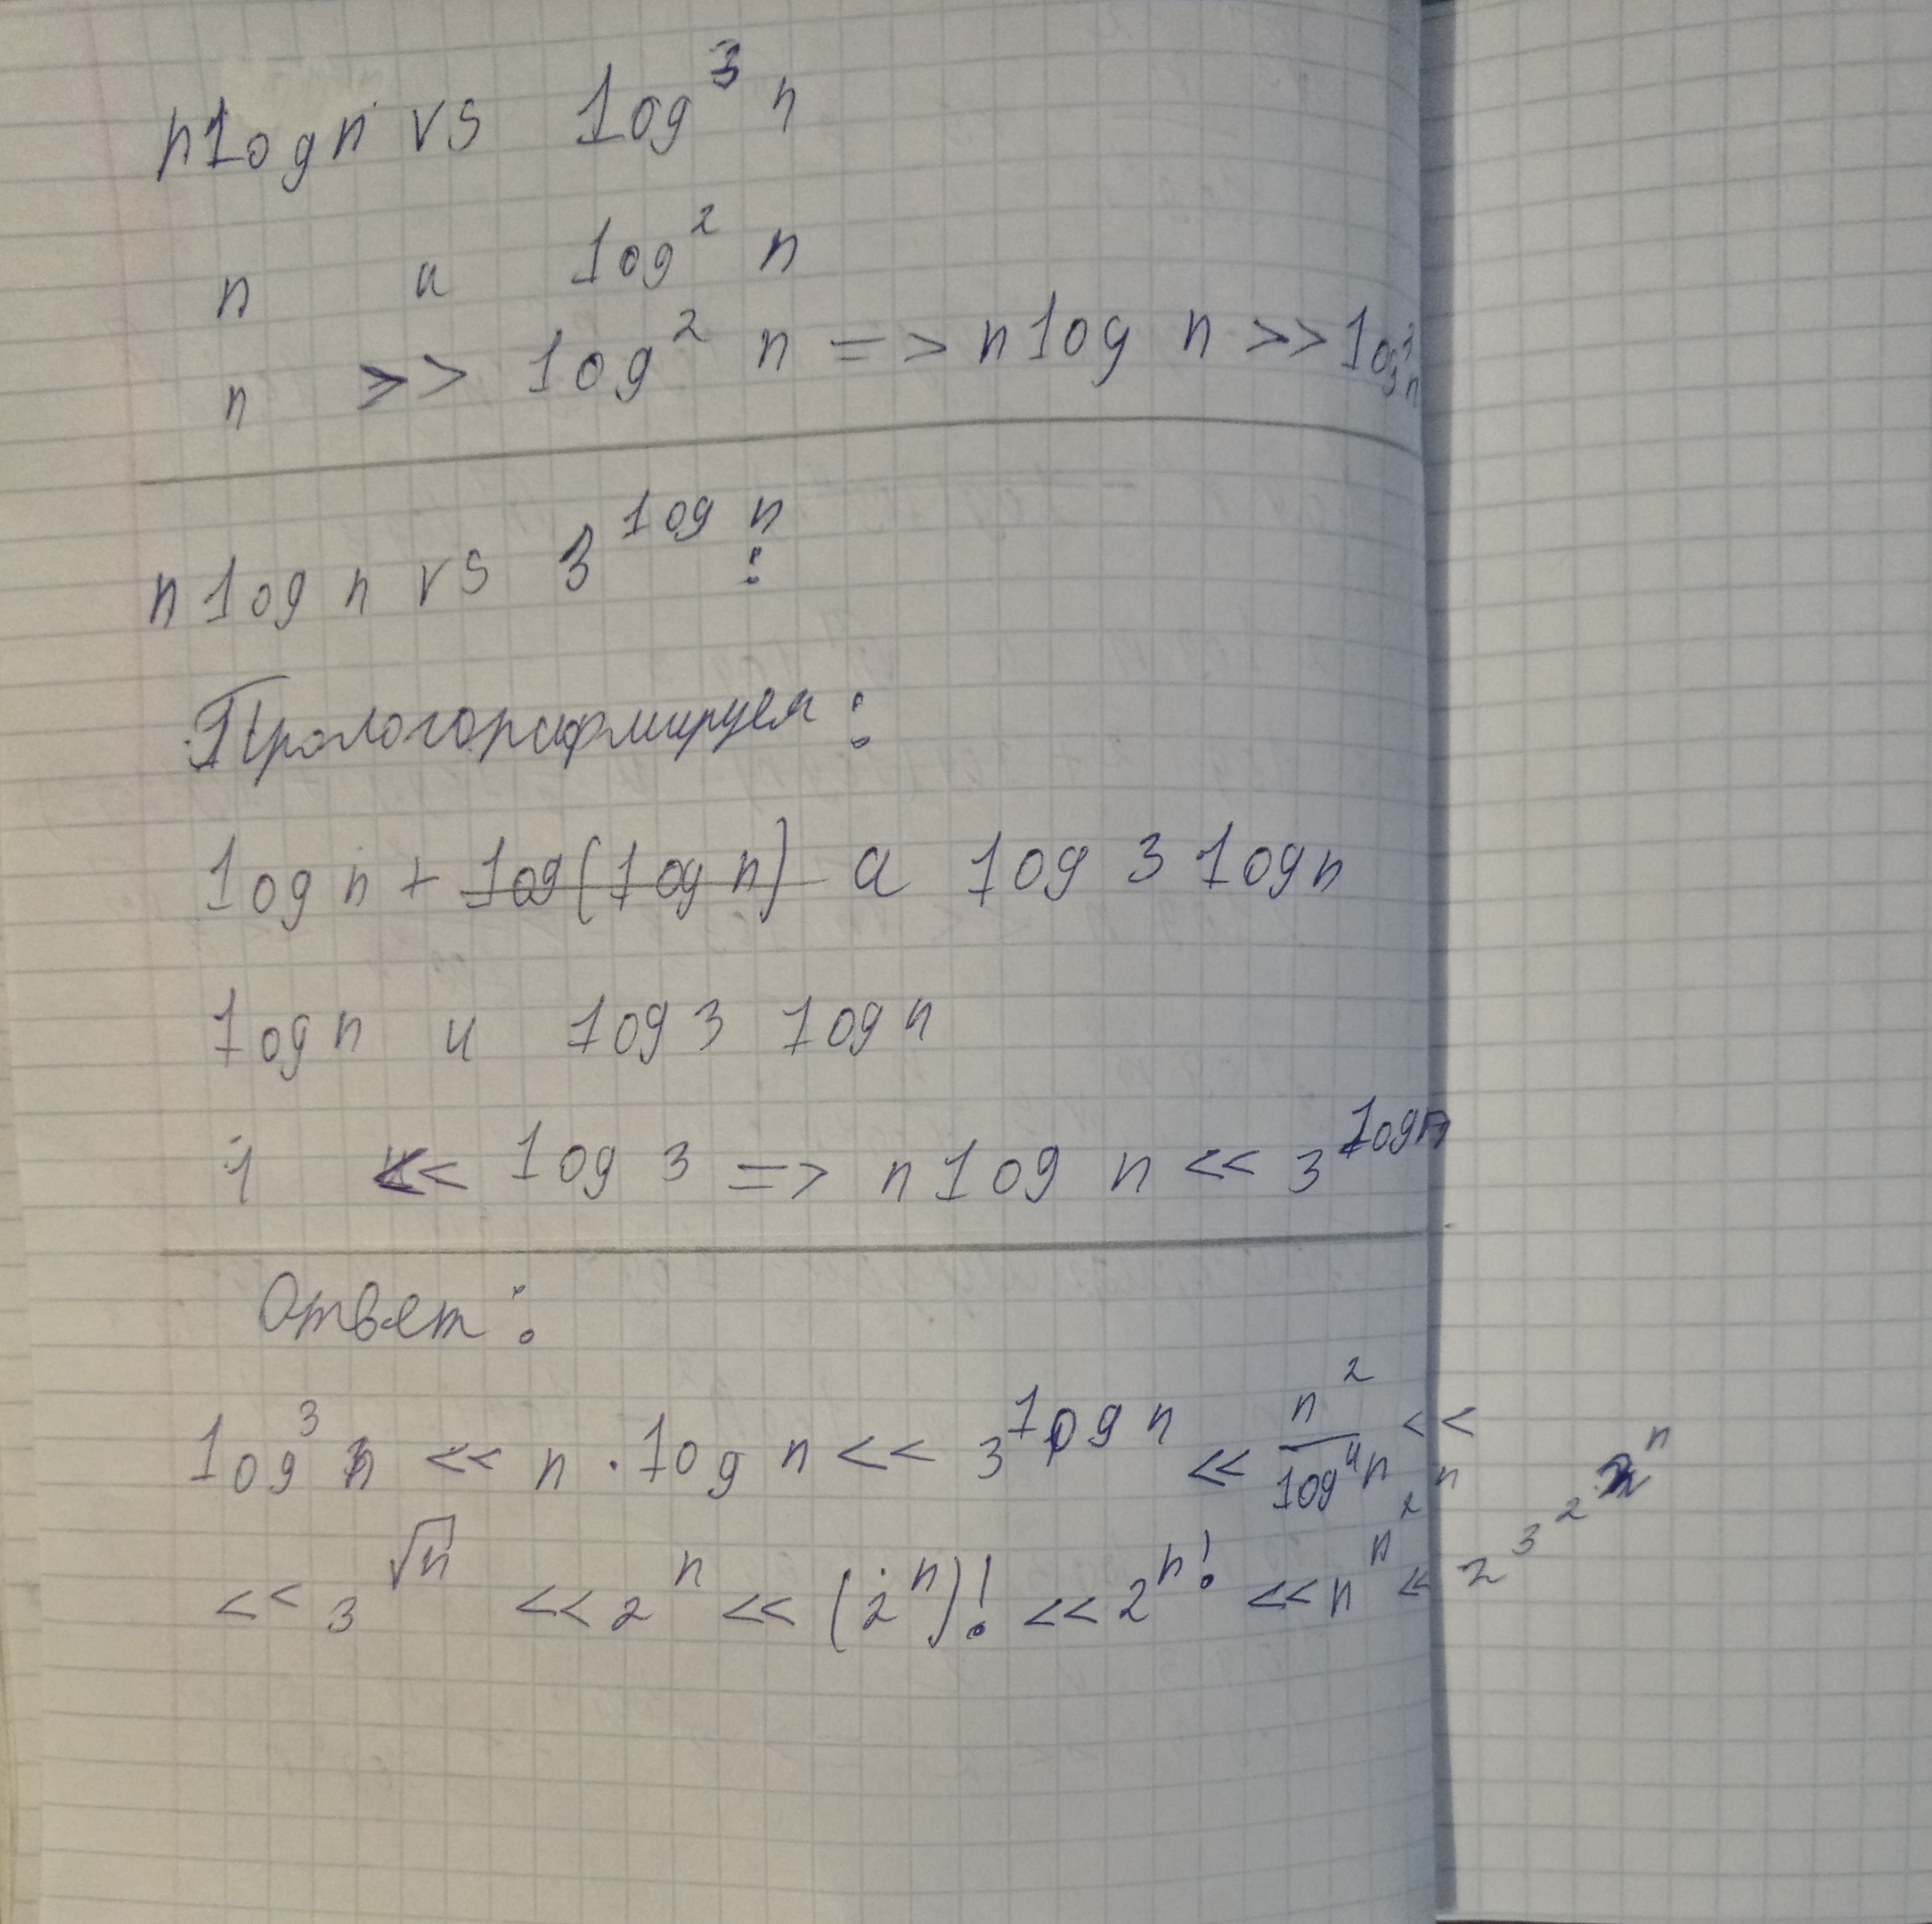 n log n vs log³ n
n и log² n
n >> log² n => n log n >> log³ n
n log n vs 3^(log n) :
Прологорифмируем:
log n + log(log n) и log 3 log n
log n и log 3 log n
1 << log 3 => n log n << 3^(log n)
Ответ:
log³ n << n · log n << 3^(log n) << n²/log⁴ n <<
<< 3^(√n) << 2^n << (2^n)! << 2^(n!) << n^(n^(2^n)) << 2^(3^(2^(2^n)))